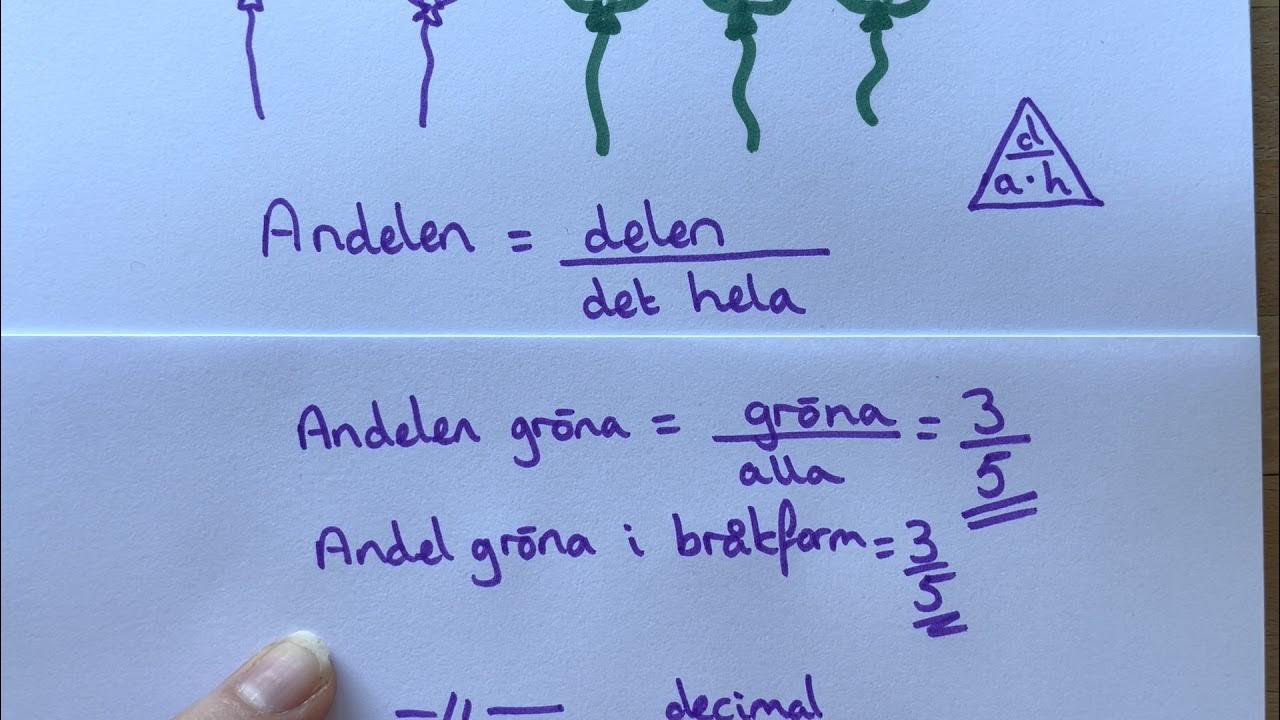 d
a·h
Andelen = delen
det hela
Andelen gröna = gröna = 3
alla 5
Andel gröna i bråkform = 3
5
—||— decimal